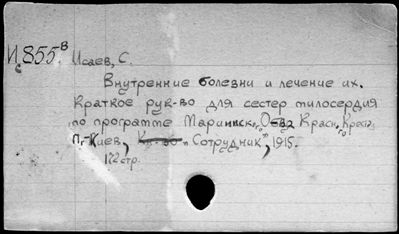 Ис855.в Исаев, С.
Внутренние болезни и лечение их.
Краткое рук-во для сестер милосердия
по программе Мариинск. О-ва Красн. Креста.
П.-Киев, Кн-во "Сотрудник", 1915.
172 стр.